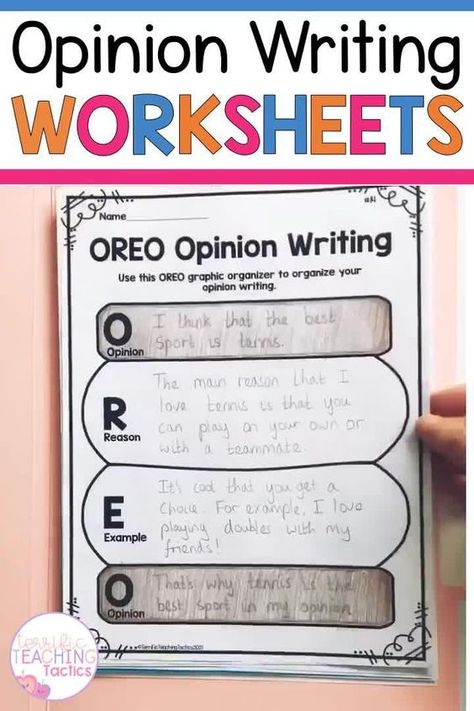 Opinion Writing
WORKSHEETS
Name
OREO Opinion Writing
Use this OREO graphic organizer to organize your
opinion writing.
O
Opinion
I think that the best
sport is tennis.
R
Reason
The main reason that I
love tennis is that you
can play on your own or
with a teammate.
E
Example
It's cool that you get a
choice. For example, I love
playing doubles with my
friends!
O
Opinion
That's why tennis is the
best sport in my opinion
©TerrificTeachingTactics2021
terrific
TEACHING
Tactics